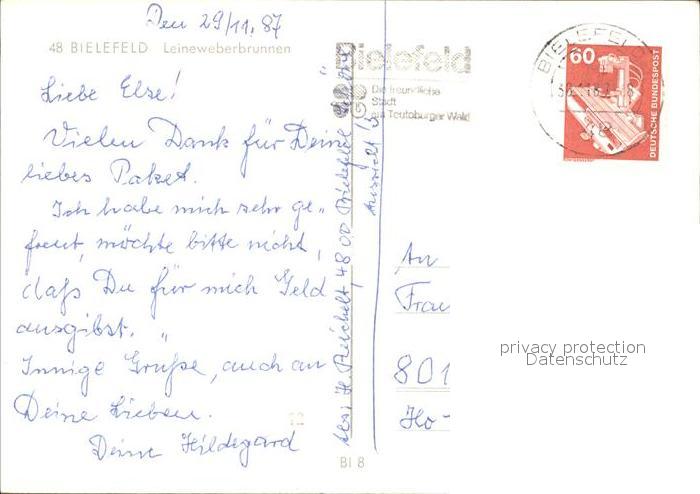 Den 29/11.87
48 BIELEFELD Leineweberbrunnen
Liebe Else!
Vielen Dank für Dein
liebes Paket.
Ich habe mich sehr ge„
freut, möchte bitte nicht,
daß Du für mich Geld
ausgibst.
Innige Grüße, auch an
Deine Lieben.
Deine Hildegard
12
BI 8
Abs; H. Reichelt, 4800 Bielefeld
Bielefeld
Die freundliche
Stadt
am Teutoburger Wald
BIELEFELD
60
DEUTSCHE BUNDESPOST
An
Frau
801
Ho-
privacy protection
Datenschutz